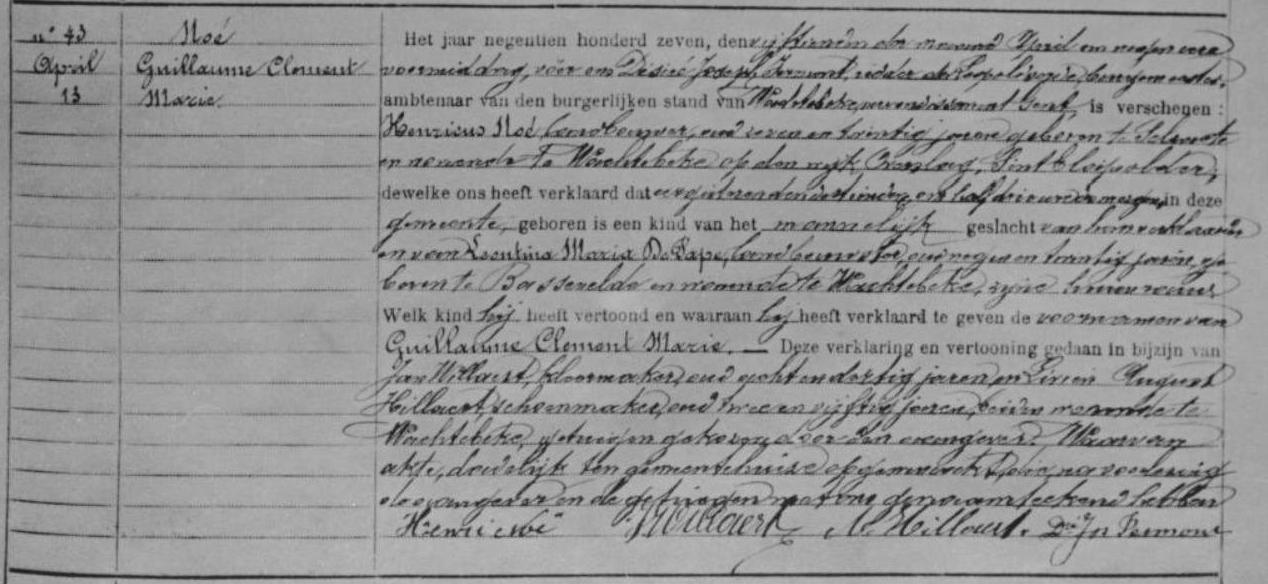 n° 43
April
13
Noé
Guillaume Clement
Marie
Het jaar negentien honderd zeven, den vijftienden der maand April om negen ure
voormiddag, vóór ons Désiré Joseph Vermont, ridder der Leopoldsorde, burgemeester,
ambtenaar van den burgerlijken stand van Wachtebeke, arrondissement Gent, is verschenen :
Henricus Noé, landbouwer, oud zeven en twintig jaren geboren te Selzaete
en wonende te Wachtebeke op den wijk Overslag, Sint
dewelke ons heeft verklaard dat eergisteren den dertienden, om half drie uur den morgen, in deze
gemeente, geboren is een kind van het mannelijk geslacht van hem verklaarder
en van Leontina Maria De Pape, landbouwster, oud negen en twintig jaren, ge
boren te Bassevelde en wonende te Wachtebeke, zijne huisvrouw
Welk kind hij heeft vertoond en waaraan hij heeft verklaard te geven de voornamen van
Guillaume Clement Marie. — Deze verklaring en vertooning gedaan in bijzijn van
Jan Willaert, kleermaker, oud acht en dertig jaren, en Livien August
Hillaert, schoenmaker, oud twee en vijftig jaren, beiden wonende te
Wachtebeke, getuigen gekozen door den aangever. Waarvan
akte, dadelijk ten gemeentehuize opgemaakt, die, na voorlezing
de aangever en de getuigen met ons genaamteekend hebben
Henri Noé Willaert Hillaert.